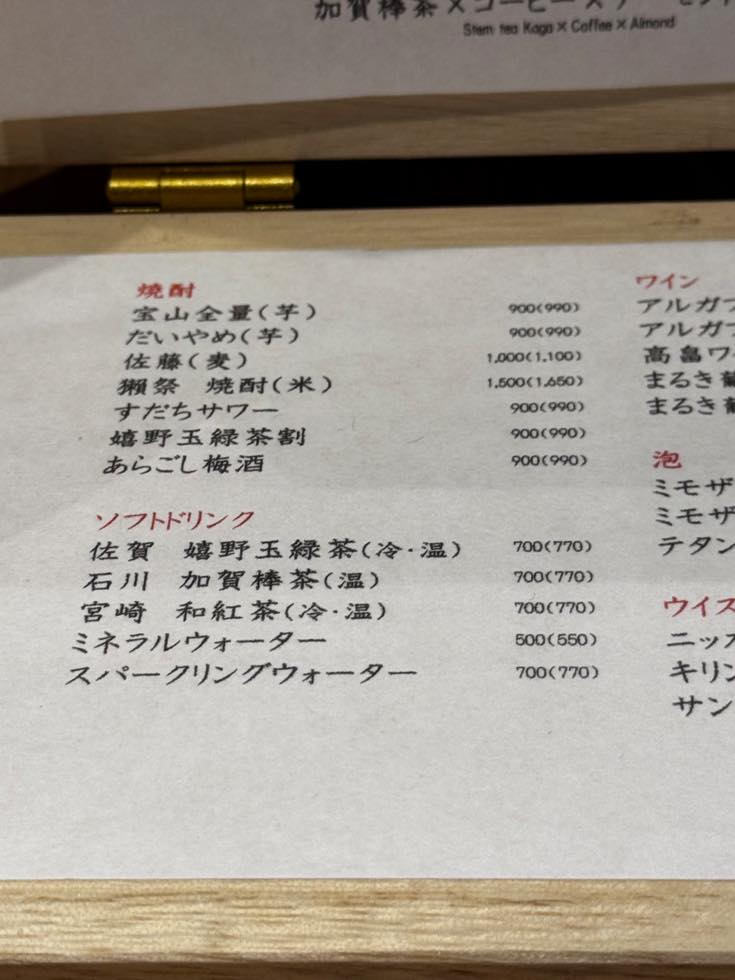 加賀棒茶×コーヒー×ア
Stem tea Kaga × Coffee × Almond
焼酎
宝山全量(芋) 900(990)
だいやめ(芋) 900(990)
佐藤(麦) 1,000(1,100)
獺祭 焼酎(米) 1,500(1,650)
すだちサワー 900(990)
嬉野玉緑茶割 900(990)
あらごし梅酒 900(990)
ソフトドリンク
佐賀 嬉野玉緑茶(冷·温) 700(770)
石川 加賀棒茶(温) 700(770)
宮崎 和紅茶(冷·温) 700(770)
ミネラルウォーター 500(550)
スパークリングウォーター 700(770)
ワイン
アルガブ
アルガブ
高畠ワイ
まるき葡
まるき葡
泡
ミモザ
ミモザ
テタン
ウイス
ニッカ
キリン
サン